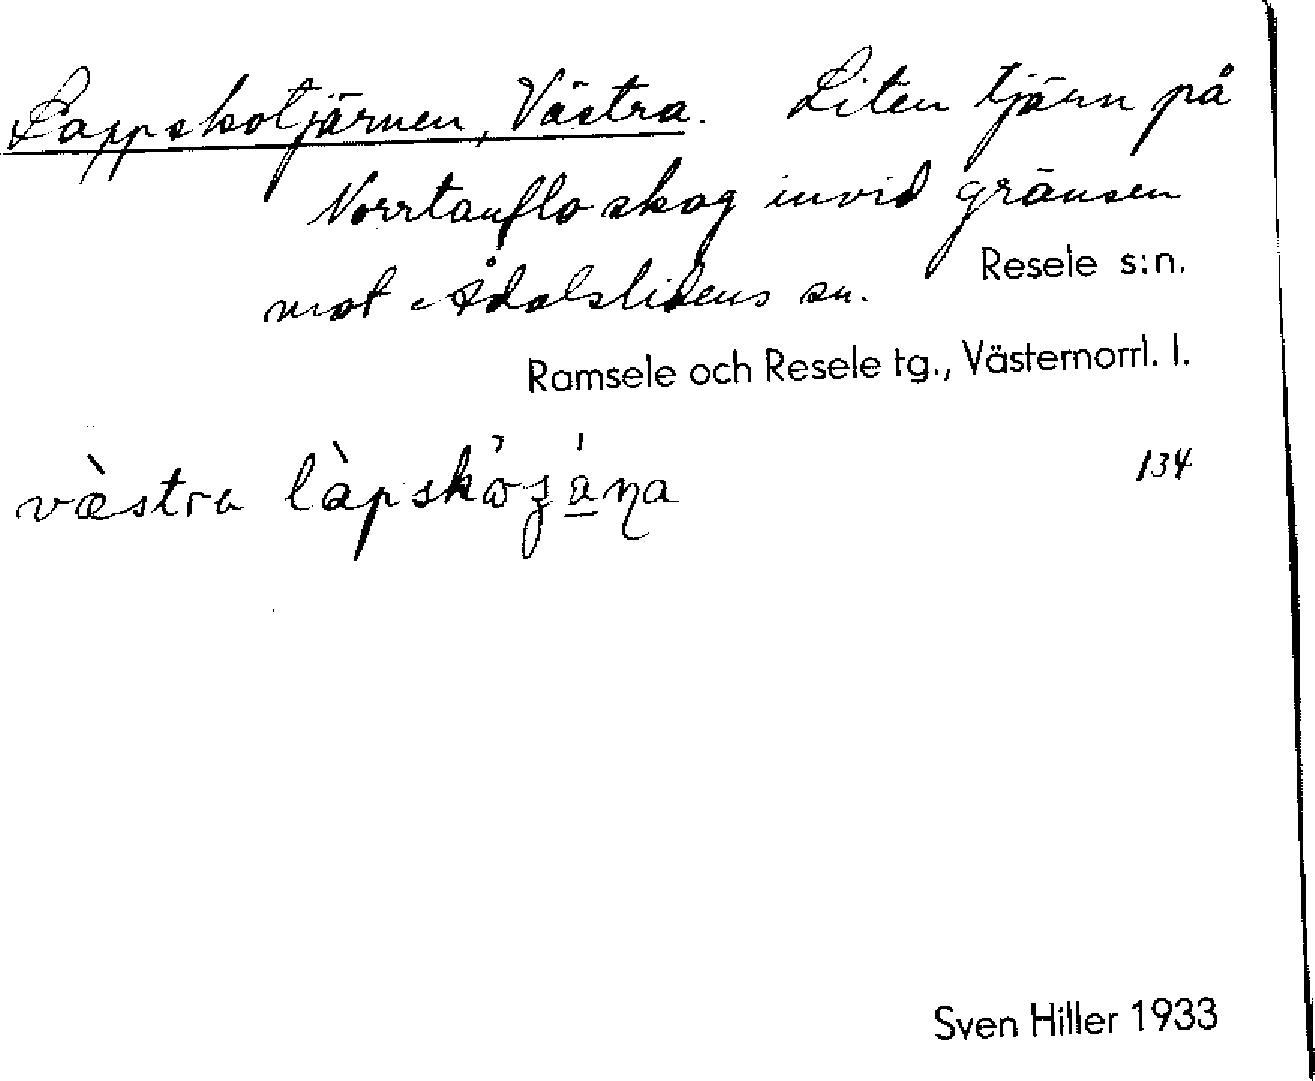 Lappskotjärnen, Västra. Liten tjärn på
Norrtanflo skog invid gränsen
mot Ådalslidens sn.
Resele s:n.
Ramsele och Resele tg., Västernorrl. l.
västra
134
Sven Hiller 1933